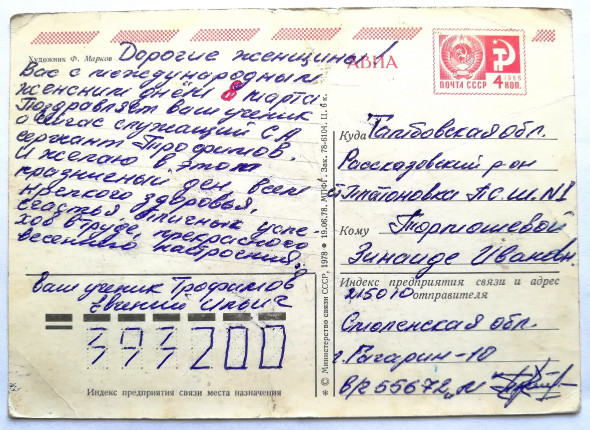 Художник Ф. Марков
Дорогие женщины!
Вас с международным
женским днём 8 марта
Поздравляет ваш ученик
а сейчас служащий СА
сержант Трофимов.
И желаю в этот
праздничный ден, всем
крепкого здоровья,
счастья, отличных успе-
хов в труде, прекрасного
весеннего настроения.
Ваш ученик Трофимов
Евгений Ильич
393200
Индекс предприятия связи места назначения
АВИА
1966
ПОЧТА СССР 4 КОП.
Куда Тамбовская обл.
Рассказовский р-он
с. Платоновка П.С.Ш. №1
Кому Тормошевой
Зинаиде Ивановн.
Индекс предприятия связи и адрес
отправителя
215010
Смоленская обл.
г. Гагарин-10
в/ч 55672 „М"
✻ © Министерство связи СССР, 1978 ✻ 19.06.78. МПФГ. Зак. 78-6104. Ц. 6 к.